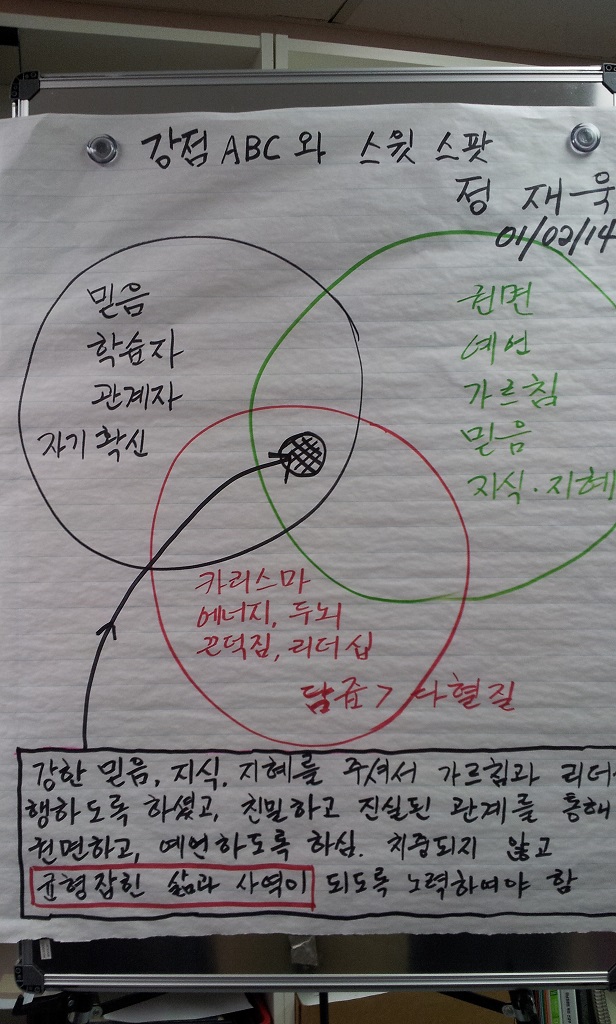 강점 ABC 와 스윗 스팟
정 재욱
01/02/14
믿음
학습자
관계자
자기 확신
권면
예언
가르침
믿음
지식·지혜
카리스마
에너지, 두뇌
끈덕짐, 리더십
담즙 > 다혈질
강한 믿음, 지식, 지혜를 주셔서 가르침과 리더
행하도록 하셨고, 친밀하고 진실된 관계를 통해
권면하고, 예언하도록 하심. 치중되지 않고
균형잡힌 삶과 사역이 되도록 노력하여야 함